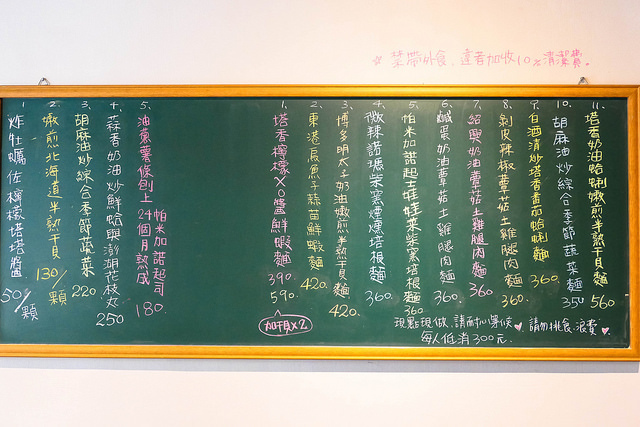 ☆禁帶外食、違者加收10%清潔費。
11.塔香奶油蛤蜊嫩煎半熟干貝麵 560
10.胡麻油炒綜合季節蔬菜麵 350
9.白酒清炒塔香番茄蛤蜊麵 360.
8.剝皮辣椒蕈菇土雞腿肉麵 360.
7.紹興奶油蕈菇土雞腿肉麵 360
6.鹹蛋奶油蕈菇土雞腿肉麵 360.
5.帕米加諾起士娃娃菜柴窯培根麵 360
4.微辣諾瑪柴窯煙燻培根麵 360.
3.博多明太子奶油嫩煎半熟干貝麵 420.
2.東港烏魚子蒜苗鮮蝦麵 420.
1.塔香檸檬XO醬鮮蝦麵 390 590.
加干貝x2
現點現做,請耐心等候♥ 請勿挑食、浪費♥
每人低消300元.
5.油蔥薯條刨上24個月熟成帕米加諾起司 180
4.蒜香奶油炒鮮蛤與澎湖花枝丸 250
3.胡麻油炒綜合季節蔬菜 220
2.嫩煎北海道半熟干貝 130/顆
1.炸牡蠣佐檸檬塔塔醬 50/顆